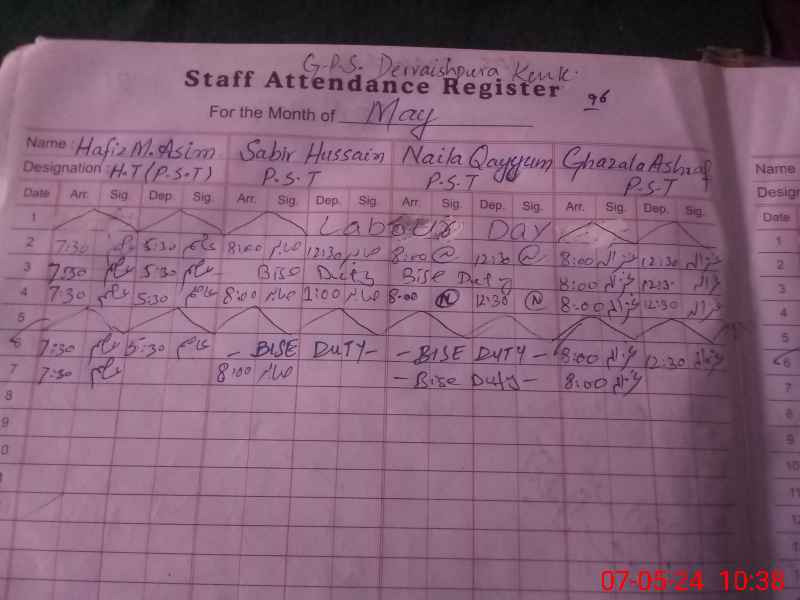 G.P.S. Dervaishpura Kenk.
Staff Attendance Register 96
For the Month of May
Name: Hafiz M. Asim Sabir Hussain Naila Qayyum Ghazala Ashraf
Designation: H.T (P.S.T) P.S.T P.S.T P.S.T
Date Arr. Sig. Dep. Sig. Arr. Sig. Dep. Sig. Arr. Sig. Dep. Sig. Arr. Sig. Dep. Sig.
1 Labour Day
2 7:30 5:30 8:00 12:30 8:00 12:30 8:00 12:30
3 7:30 5:30 Bise Duty Bise Duty 8:00 12:30
4 7:30 5:30 8:00 1:00 8:00 N 12:30 N 8:00 12:30
5
6 7:30 5:30 - BISE DUTY - - BISE DUTY - 8:00 12:30
7 7:30 8:00 - Bise Duty - 8:00
8
9
0
1
Name
Design
Date
1
2
3
4
5
6
7
8
9
10
11
12
07-05-24 10:38